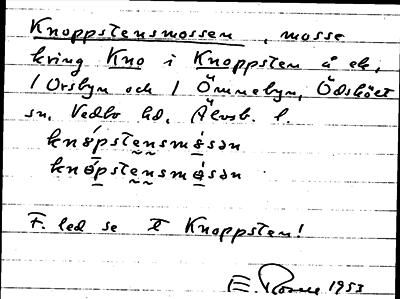 Knoppstensmossen, mosse
kring Kno i Knoppsten å ek.
1 Orsbyn och 1 Ömmebyn, Ödskölt
sn, Vedbo hd, Älvsb. l.
knɵ́pstensmɵ̀sən
knɵ̄́pstensmɵ̀sən
F. led se t Knoppsten!
E. 1953